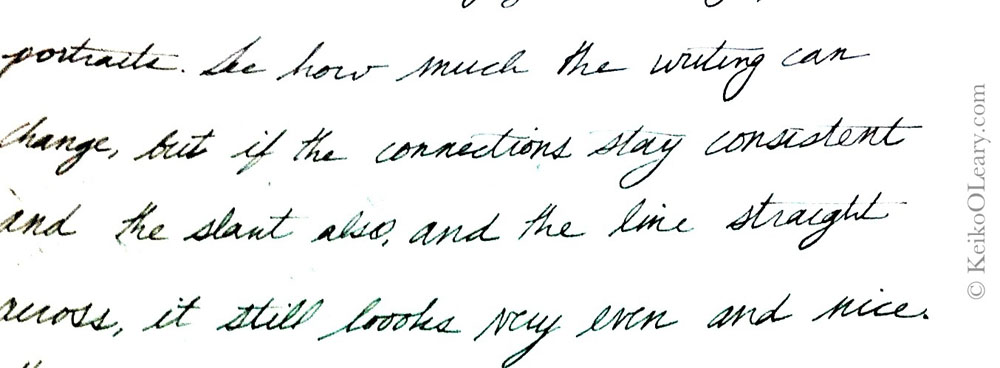 portraits. See how much the writing can
change, but if the connections stay consistent
and the slant also, and the line straight
across, it still loooks very even and nice.
© KeikoOLeary.com